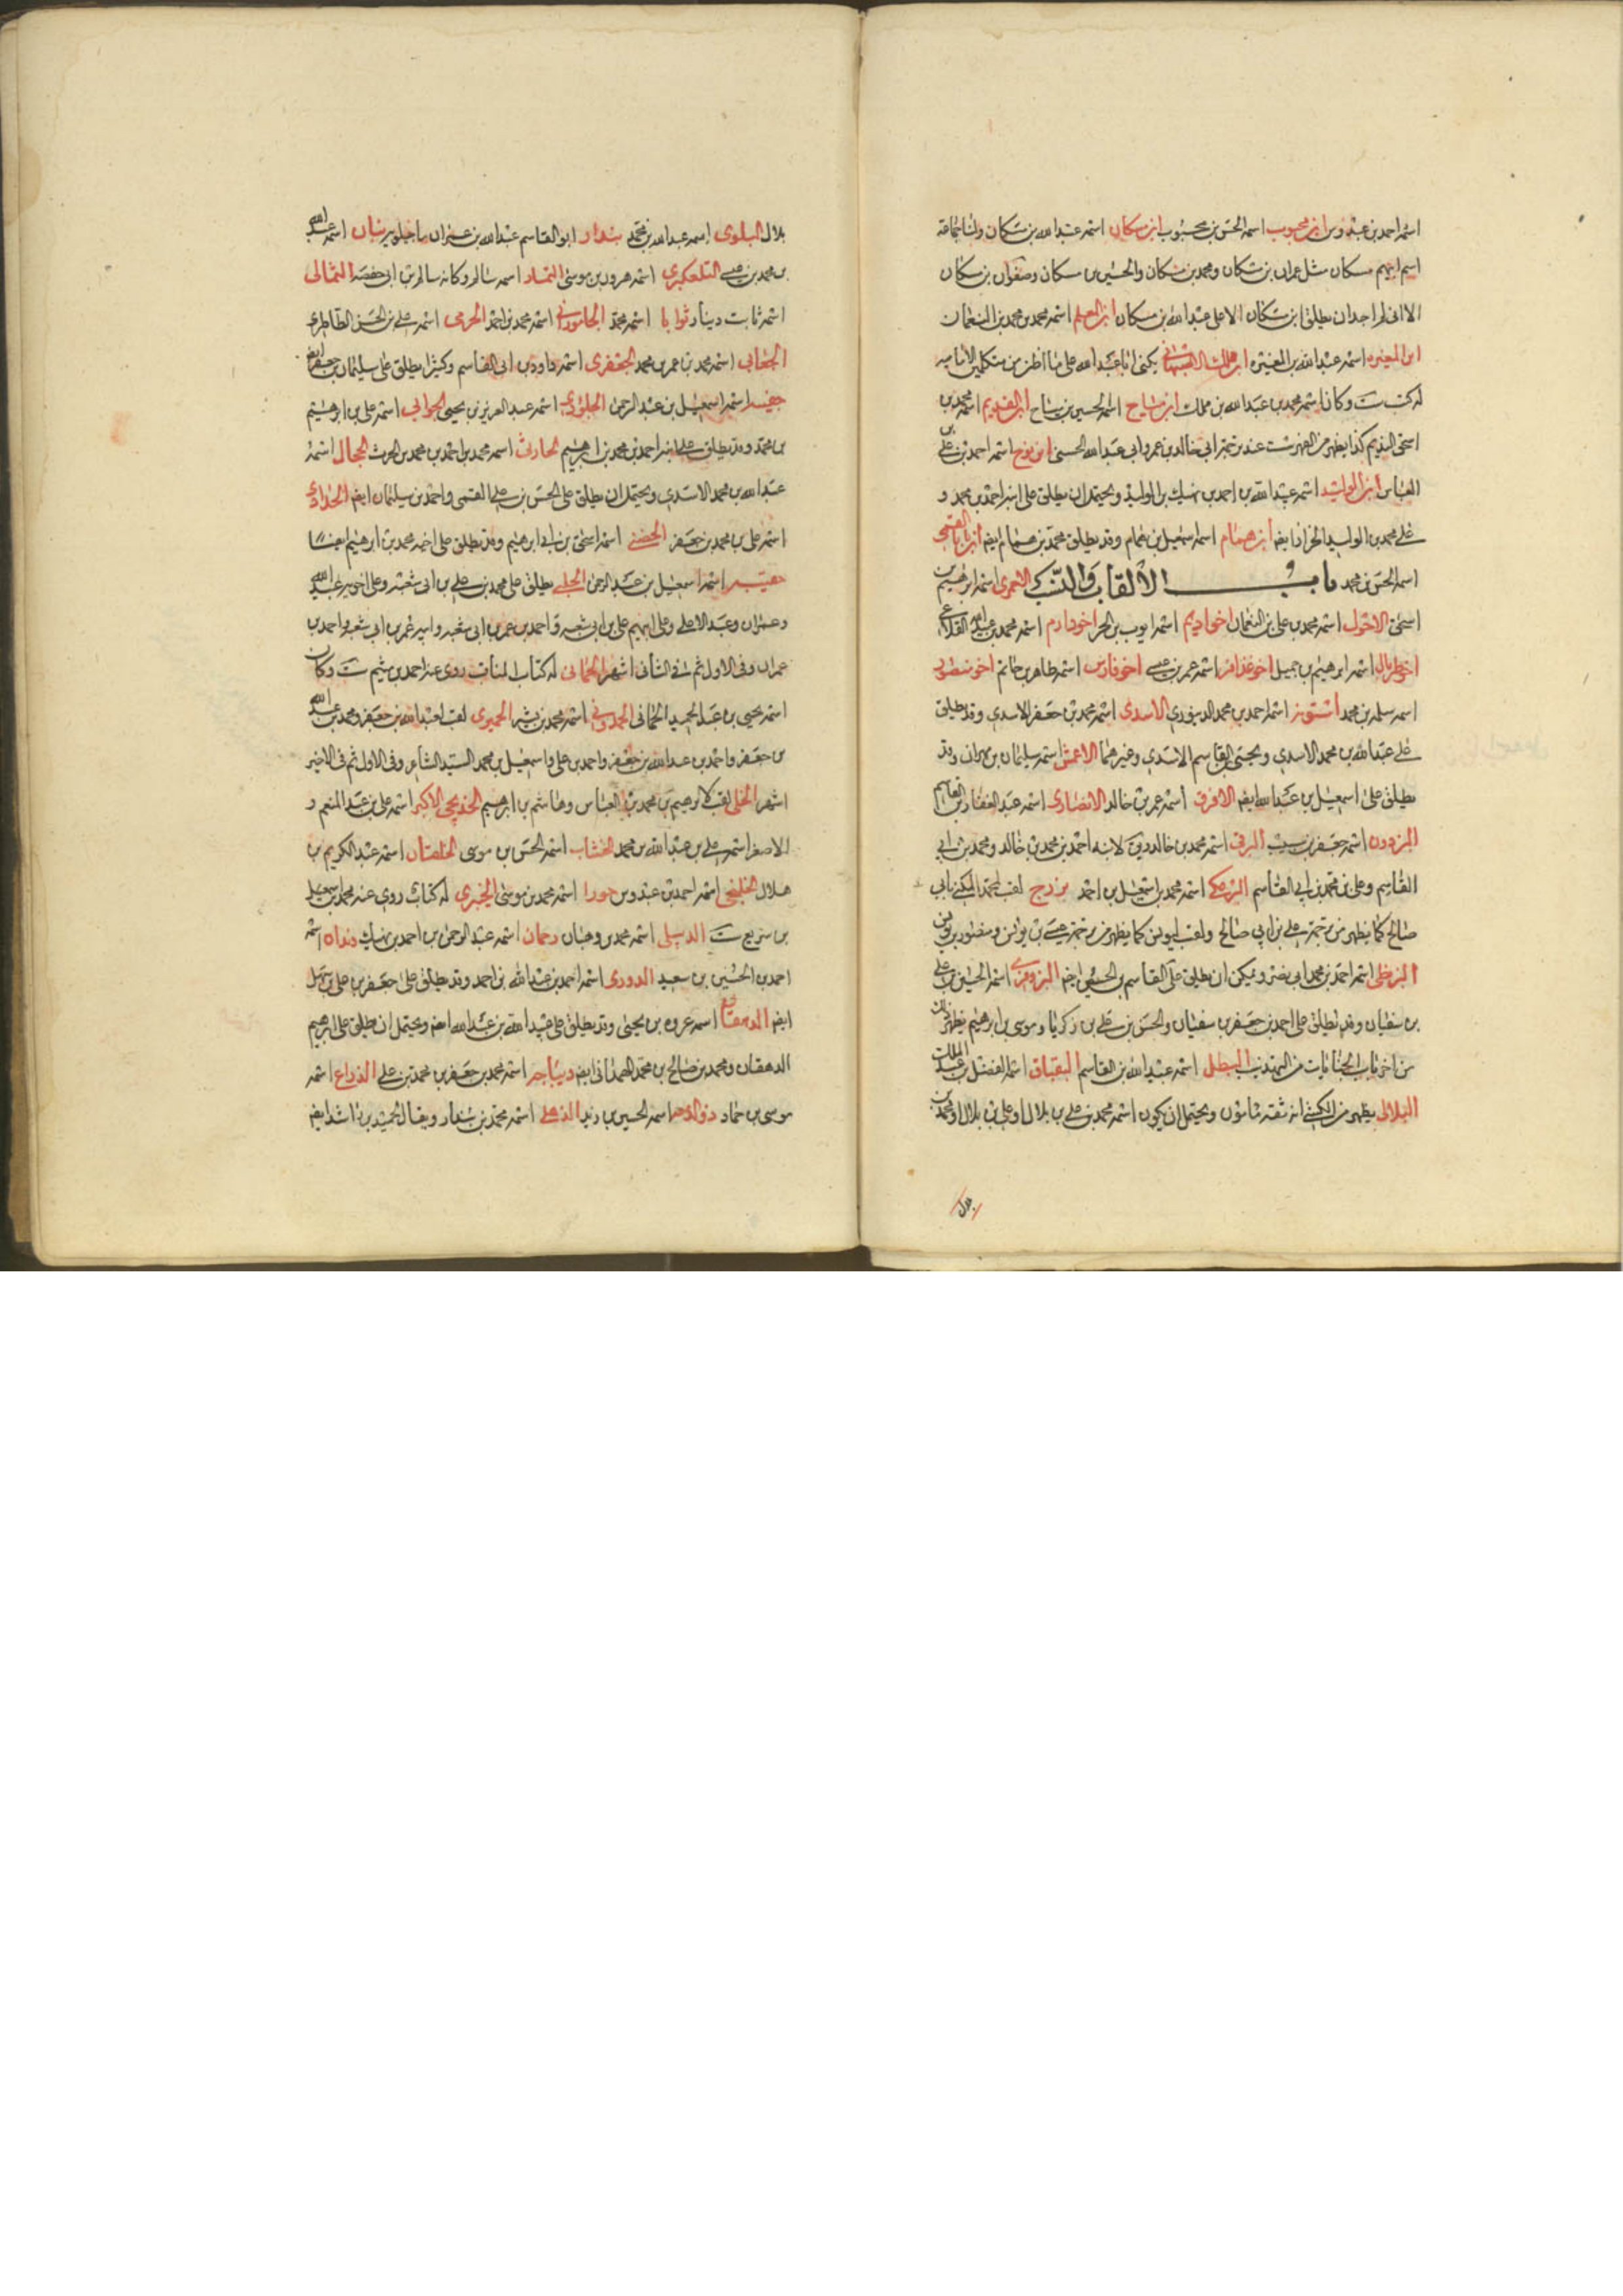 اسمه احمد بن عبدوس ابن محبوب اسمه الحسن بن محبوب ابن مسكان اسمه عبد الله بن مسكان ولنا جماعة
اسم ابيهم مسكان مثل عمران بن مسكان ومحمد بن مسكان والحسين بن مسكان وصفوان بن مسكان
الا انى لم اجد ان يطلق ابن مسكان الا على عبد الله بن مسكان ابن المعلم اسمه محمد بن محمد بن النعمان
ابن المغيره اسمه عبد الله بن المغيره ابن مملك الاصبهانى يكنى ابا عبد الله على ما اظن من متكلمين الاماميه
له كتب ست وكان اسمه محمد بن عبد الله بن مملك ابن مياح اسمه الحسين بن مياح ابن النديم اسمه محمد بن
اسحق النديم كذا يظهر من الفهرست عند ترجمة ابى خالد بن عمرو ابى عبد الله الحسنى ابن نوح اسمه احمد بن على بن
العباس ابن الوليد اسمه عبد الله بن احمد بن نهيك بن الوليد ويحتمل ان يطلق على ابنه احمد بن محمد و
على محمد بن الوليد الخزاز ايضا ابن همام اسمه اسمعيل بن همام وقد يطلق محمد بن همام ايضا ابن بابا القمى
اسمه الحسن بن محمد باب فى الالقاب والنسب الاحمرى اسمه ابرهيم بن
اسحق الاحول اسمه محمد بن على بن النعمان اخو اديم اسمه ايوب بن الحر اخو دارم اسمه محمد بن عبد الله القلاء
اخو طربال اسمه ابرهيم بن جميل اخو عذافر اسمه عمر بن عيسى اخو فارس اسمه طاهر بن حاتم اخو منصور
اسمه سلمه بن محمد استونه اسمه احمد بن محمد الدينورى الاسدى اسمه محمد بن جعفر الاسدى وقد يطلق
على عبد الله بن محمد الاسدى ويحيى بن القاسم الاسدى وغيرهما الاعمش اسمه سليمان بن مهران وقد
يطلق على اسمعيل بن عبد الله ايضا الافرق اسمه عمر بن خالد الانصارى اسمه عبد الغفار بن القاسم
البزوده اسمه جعفر بن البرقى اسمه محمد بن خالد ويق لابنه احمد بن محمد بن خالد ومحمد بن ابى
القاسم وعلى بن محمد بن ابى القاسم البرمكى اسمه محمد بن اسمعيل بن احمد بزرج لقب لمحمد المكنى بابى
صالح كما يظهر من ترجمة على بن ابى صالح ولقب ليونس كما يظهر من ترجمة عيسى بن يونس ومنصور بن يونس
البزنطى اسمه احمد بن محمد ابى نصر ويمكن ان يطلق على القاسم بن الحسين ايضا البزوفرى اسمه الحسين بن على
بن سفيان وقد يطلق على احمد بن جعفر بن سفيان والحسن بن على بن زكريا وموسى بن ابرهيم يظهر ذلك
من اخر باب الجنايات من التهذيب البطل اسمه عبد الله بن القاسم البقباق اسمه الفضل بن عبد الملك
البلالى يظهر من الكشى انه ثقة مامون ويحتمل ان يكون اسمه محمد بن على بن بلال او على بن بلال او محمد بن
بلال
بلال البلوى اسمه عبد الله بن محمد بندار ابو القاسم عبد الله بن عمران ماجيلويه بنان اسمه عبد الله
بن محمد بن عيسى التلعكبرى اسمه هرون بن موسى التمار اسمه سالم وكانه سالم بن ابى حفصه الثمالى
اسمه ثابت دينار ثوابا اسمه محمد الجامورانى اسمه محمد بن احمد الجرمى اسمه على بن الحسن الطاطرى
الجعابى اسمه محمد بن عمر بن محمد الجعفرى اسمه داود بن ابى القاسم وكثيرا يطلق على سليمان بن جعفر ايضا
جفينه اسمه اسمعيل بن عبد الرحمن الجلودى اسمه عبد العزيز بن يحيى الجوانى اسمه على بن ابرهيم
بن محمد وقد يطلق على ابنه احمد بن محمد بن ابرهيم الحارثى اسمه محمد بن احمد بن محمد بن الحرث الحجال اسمه
عبد الله بن محمد الاسدى ويحتمل ان يطلق على الحسن بن على القمى واحمد بن سليمان ايضا الحذاء
اسمه على بن محمد بن جعفر الحضينى اسمه اسحق بن ابرهيم وقد يطلق على اخيه محمد بن ابرهيم ايضا
حقيبه اسمه اسمعيل بن عبد الرحمن الحلبى يطلق على محمد بن على بن ابى شعبه وعلى اخوته عبيد الله
وعمران وعبد الاعلى وعلى ابيهم على بن ابى شعبه واحمد بن عمر بن ابى شعبه وابيه عمر بن ابى شعبه واحمد بن
عمران وفى الاول ثم فى الثانى اشهر الحمانى له كتاب المناقب روى عنه احمد بن ميثم ست وكان
اسمه يحيى بن عبد الحميد الحمانى الحمدونى اسمه محمد بن بشر الحميرى لقب لعبد الله بن جعفر ومحمد بن عبد الله
بن جعفر واحمد بن عبد الله بن جعفر واحمد بن على واسمعيل بن محمد السيد الشاعر وفى الاول ثم فى الاخير
اشهر الختلى لقب لابرهيم بن محمد بن العباس وهاشم بن ابرهيم الخديجى الاكبر اسمه على بن عبد المنعم و
الاصغر اسمه على بن عبد الله بن محمد الخشاب اسمه الحسن بن موسى الخلقان اسمه عبد الكريم بن
هلال الخلنجى اسمه احمد بن عبدوس حورا اسمه محمد بن موسى الخيبرى له كتاب روى عنه محمد بن اسمعيل
بن بزيع ست الدبيلى اسمه محمد بن وهبان دحمان اسمه عبد الرحمن بن احمد بن نهيك دندان اسمه
احمد بن الحسين بن سعيد الدورى اسمه احمد بن عبد الله بن احمد وقد يطلق على جعفر بن على بن سهل
ايضا الدهقان اسمه عروه بن يحيى وقد يطلق على عبيد الله بن عبد الله ايضا ويحتمل ان يطلق على ابرهيم
الدهقان ومحمد بن صالح بن محمد الهمدانى ايضا ديباجه اسمه محمد بن جعفر بن محمد بن على الذراع اسمه
موسى بن حماد ذو الدمعه اسمه الحسين بن زيد الذهلى اسمه محمد بن بندار ويقال لحميد بن راشد ايضا